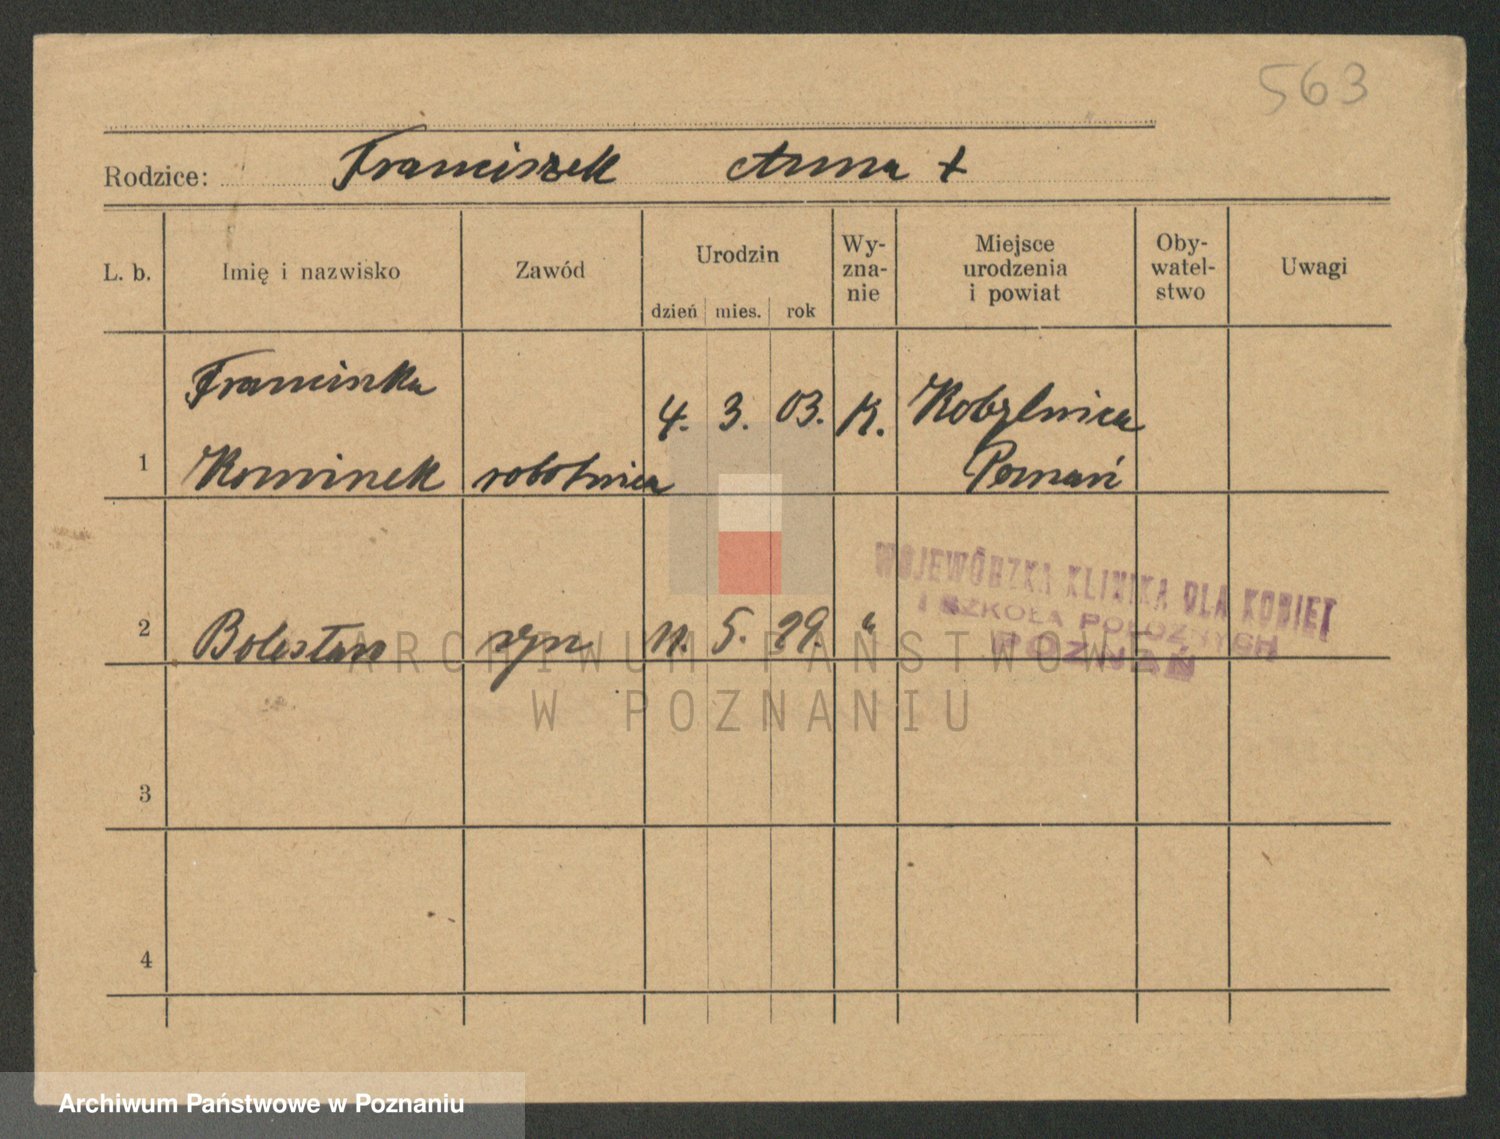 563
Rodzice: Franciszek Anna +
L. b.
Imię i nazwisko
Zawód
Urodzin
dzień mies. rok
Wy-
zna-
nie
Miejsce
urodzenia
i powiat
Oby-
watel-
stwo
Uwagi
Francinka
1 Kominek robotnica 4. 3. 03. K. Kobylnica
Poznań
2 Bolesław syn 11. 5. 29. "
WOJEWÓDZKA KLINIKA DLA KOBIET
I SZKOŁA POŁOŻNYCH
POZNAŃ
ARCHIWUM PAŃSTWOWE
W POZNANIU
3
4
Archiwum Państwowe w Poznaniu